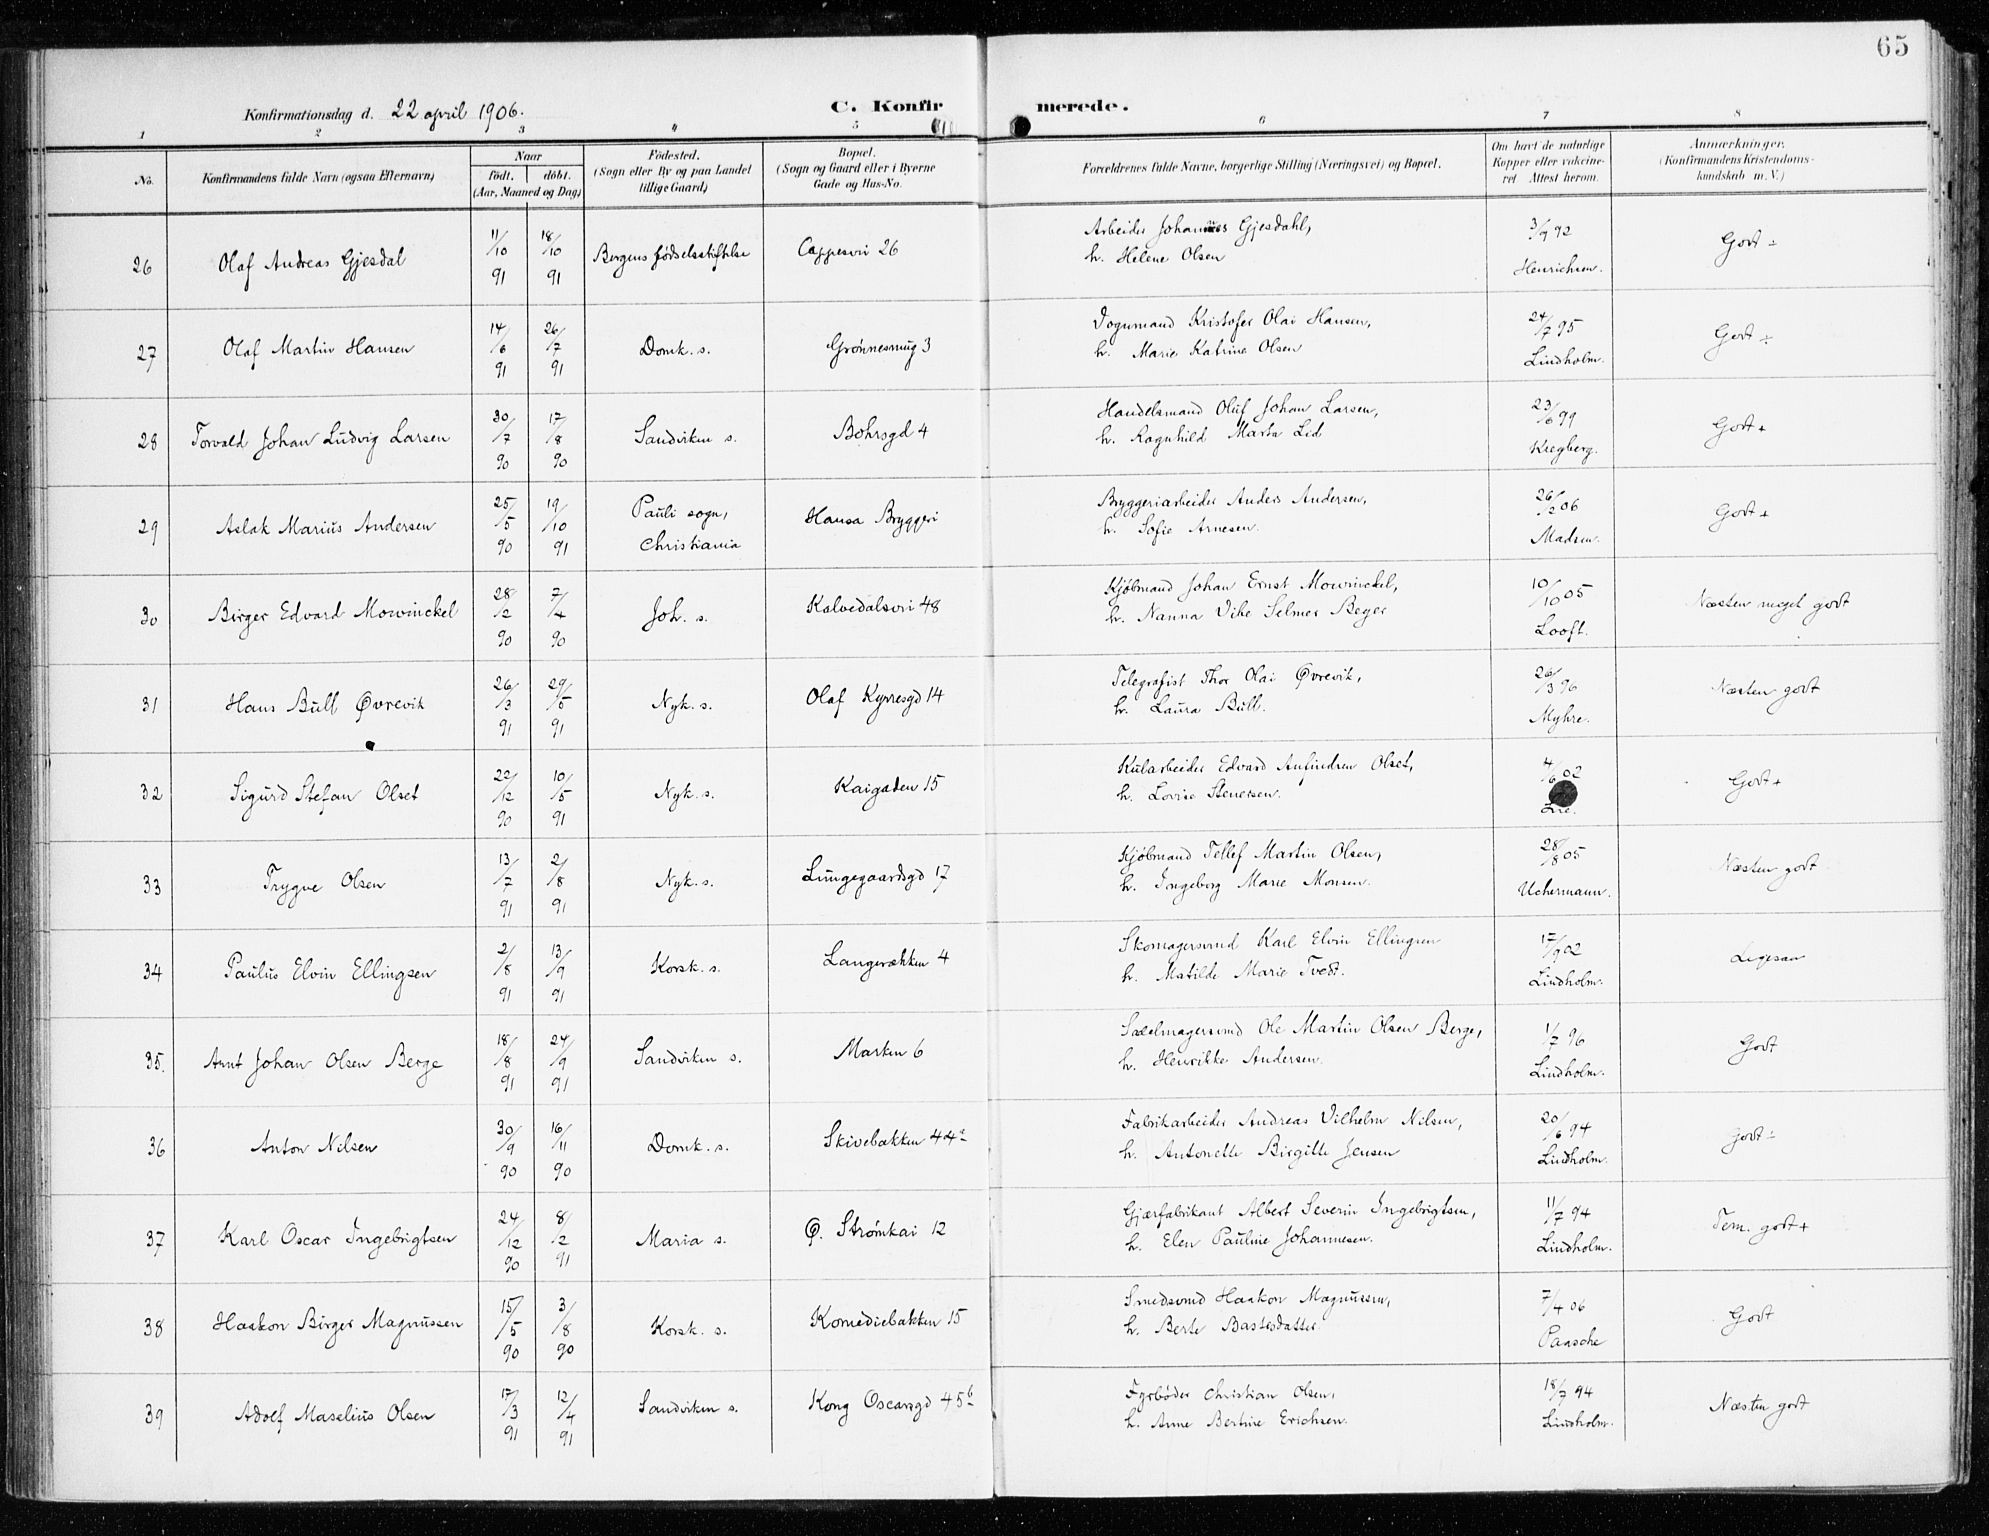 65
Konfirmationsdag d. 22 april 1906.
C. Konfir merede.
1 2 3 4 5 6 7 8
No. Konfirmandens fulde Navn (ogsaa Efternavn) Naar født. døbt. (Aar, Maaned og Dag) Fødested. (Sogn eller By og paa Landet tillige Gaard) Bopæl. (Sogn og Gaard eller i Byerne Gade og Hus-No. Forældrenes fulde Navne, borgerlige Stilling (Næringsvei) og Bopæl. Om havt de naturlige Kopper eller vaccineret. Attest herom. Anmærkninger. (Konfirmandens Kristendomskundskab m. V.)
26 Olaf Andreas Gjesdal 11/10 91 18/10 91 Bergens fødselsstiftelse Cappesvei 26 Arbeider Johannes Gjesdahl, h. Helene Olsen 3/7 92 Henrichsen. Godt ÷
27 Olaf Martin Hansen 14/6 91 26/7 91 Domk. s. Grønnesmug 3 Dogumand Kristofer Olai Hansen, h. Marie Katrine Olsen 24/7 95 Lindholm. Godt ÷
28 Torvald Johan Ludvig Larsen 30/7 90 17/8 90 Sandviken s. Bohrsgd 4 Handelsmand Oluf Johan Larsen, h. Ragnhild Marta Lid 23/6 99 Kregberg. Godt +
29 Aslak Marius Andersen 25/5 90 19/10 91 Pauli sogn, Christiania Hansa Bryggeri Bryggeriarbeider Anders Andersen, h. Sofie Arnesen. 26/2 06 Madsen. Godt +
30 Birger Edvard Mowinckel 28/2 90 7/4 90 Joh. s. Kalvedalsvei 48 Kjøbmand Johan Ernst Mowinckel, h. Nanna Vibe Selmer Beyer 10/10 05 Looft. Næsten meget godt
31 Hans Bull Øvrevik 26/3 91 29/5 91 Nyk. s. Olaf Kyrresgd 14 Telegrafist Thor Olai Øvrevik, h. Laura Bull. 26/3 96 Myhre. Næsten godt
32 Sigurd Stefan Olset 22/12 90 10/5 91 Nyk. s. Kaigaden 15 Kularbeider Edvard Anfindsen Olset, h. Lovise Stenersen. 4/6 02 Lie. Godt +
33 Trygve Olsen 13/7 91 2/8 91 Nyk. s. Lungegaardsgd 17 Kjøbmand Tellef Martin Olsen, h. Ingeborg Marie Monsen. 28/8 05 Uchermann. Næsten godt
34 Paulus Elvin Ellingsen 2/8 91 13/9 91 Korsk. s. Langerækken 4 Skomagersvend Karl Elvin Ellingsen h. Matilde Marie Tvedt. 17/9 02 Lindholm. Ligesaa
35. Arnt Johan Olsen Berge 18/8 91 24/9 91 Sandviken s. Marken 6 Sadelmagersvend Ole Martin Olsen Berge, h. Henrikke Andersen. 1/7 96 Lindholm. Godt
36 Anton Nilsen 30/9 90 16/11 90 Domk. s. Skivebakken 44a Fabrikarbeider Andreas Vilhelm Nilsen, h. Antonette Birgitte Jensen 20/6 94 Lindholm. Godt ÷
37 Karl Oscar Ingebrigtsen 24/12 90 8/2 91 Maria s. Ø. Strømkai 12 Gjærfabrikant Albert Severin Ingebrigtsen, h. Elen Pauline Johannesen. 11/7 94 Lindholm. Tem. godt +
38 Haakon Birger Magnussen 15/5 90 3/8 90 Korsk. s. Komediebakken 15 Smedsvend Haakon Magnussen, h. Berte Bastesdatter. 7/4 06 Paasche Godt
39 Adolf Maselius Olsen 17/3 91 12/4 91 Sandviken s. Kong Oscarsgd 45b Fyrbøder Christian Olsen, h. Anne Bertine Erichsen. 18/7 94 Lindholm. Næsten godt